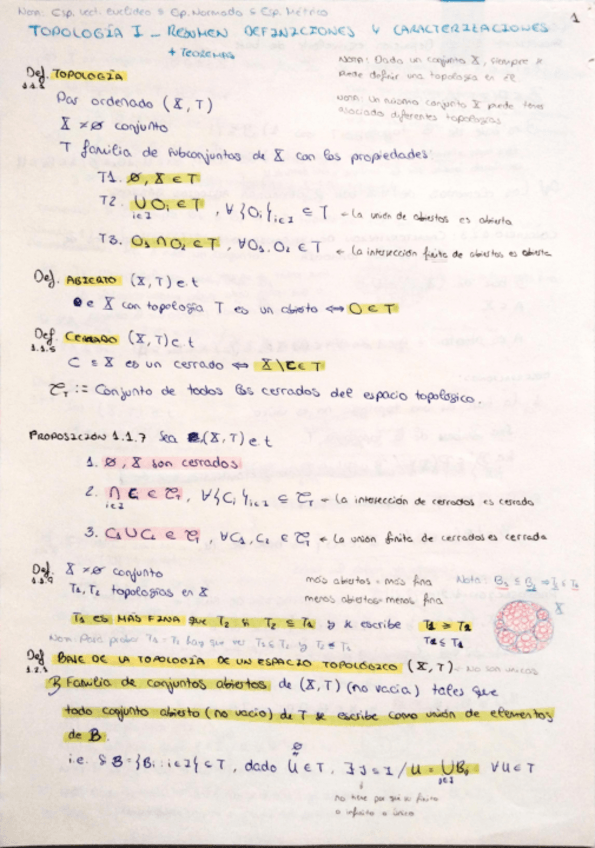 Nom: Esp. Vect. Euclídeo → Esp. Normado → Esp. Métrico
1
TOPOLOGÍA I - RESUMEN DEFINICIONES Y CARACTERIZACIONES
+ TEOREMAS
Nota: Dado un conjunto X, siempre se
puede definir una topología en él
Def. TOPOLOGÍA
Par ordenado (X, T)
Nota: Un mismo conjunto X puede tener
asociado diferentes topologías
X ≠ ∅ conjunto
T familia de subconjuntos de X con las propiedades
T1. ∅, X ∈ T
T2. ∪ Oi ∈ T, ∀ {Oi}i∈I ⊆ T → La unión de abiertos es abierta
i∈I
T3. O1 ∩ O2 ∈ T, ∀O1, O2 ∈ T ← La intersección finita de abiertos es abierta
Def. ABIERTO (X, T) e t
O ⊆ X con topología T es un abierto ⟺ O ∈ T
Def. CERRADO (X, T) e t
1.1.5
C ⊆ X es un cerrado ⟺ X \ C ∈ T
C_T := Conjunto de todos los cerrados del espacio topológico.
PROPOSICIÓN 1.1.7 Sea (X, T) e t
1. ∅, X son cerrados
2. ∩ Ci ∈ C_T, ∀{Ci}i∈I ⊆ C_T → La intersección de cerrados es cerrada
i∈I
3. C1 ∪ C2 ∈ C_T, ∀C1, C2 ∈ C_T → La unión finita de cerrados es cerrada
Def. X ≠ ∅ conjunto
1.1.9
T1, T2 topologías en X
más abiertos = más fina
menos abiertos = menos fina
Nota:
X
T1 ES MÁS FINA que T2 si T2 ⊆ T1 y se escribe T1 ≥ T2
T2 ≤ T1
Def BASE DE LA TOPOLOGÍA DE UN ESPACIO TOPOLÓGICO (X, T) - No son únicas
B Familia de conjuntos abiertos de (X, T) (no vacía) tales que
todo conjunto abierto (no vacío) de T se escribe como unión de elementos
de B.
i.e. si B = {Bi : i∈I} ⊂ T, dado U ∈ T, ∃ J ⊆ I / U = ∪ Bj ∀U ∈ T
j∈J
no tiene por qué ser finito
o infinito o único